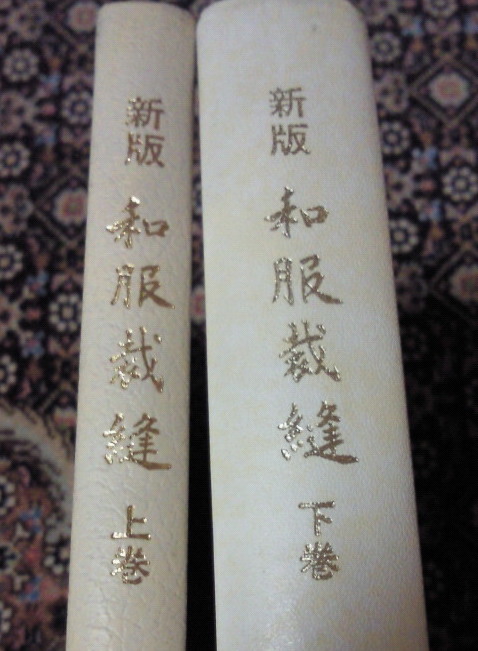 新版 和服裁縫 上巻
新版 和服裁縫 下巻